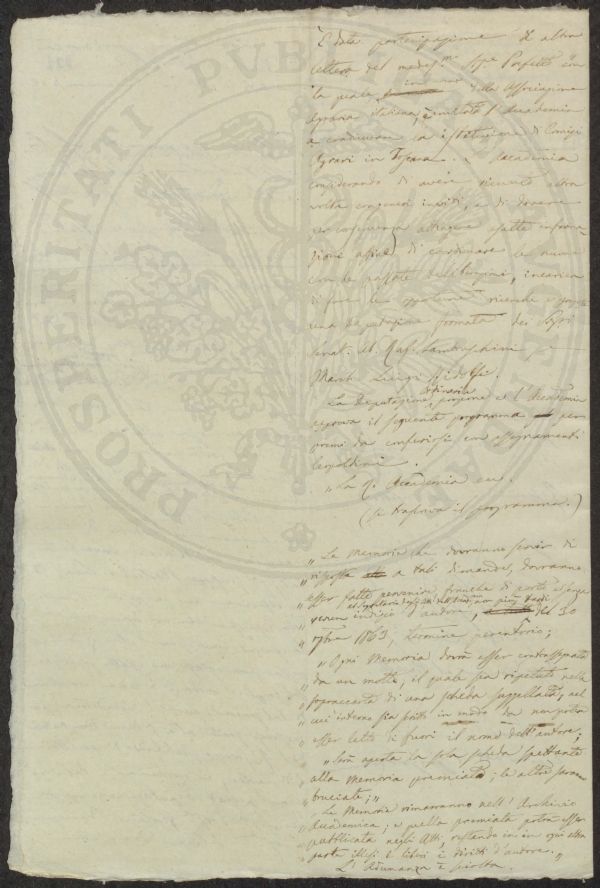 È data partecipazione di altra
lettera del medes.mo Sig.e Prefetto con
la quale in nome della Associazione
Agraria italiana è invitata l'Accademia
a coadiuvare la istituzione di Comizi
Agrari in Toscana. L'Accademia
considerando di avere ricevuto altra
volta congeneri inviti, e di dovere
per conseguenza attingere esatte informa
zioni affine di coordinare le nuove
con le passate deliberazioni, incarica
di fare le opportune ricerche e proposte
una deputazione formata dei Sigri
Senat. Ab. Raf. Lambruschini
March. Luigi Ridolfi.
La Deputazione ordinaria propone ed l'Accademia
approva il seguente programma per
premi da conferirsi con assegnamenti
Leopoldini.
"La R. Accademia ec.
(si trascriva il programma.)
"Le Memorie che dovranno servir di
"risposta a tali dimande, dovranno
"esser fatte pervenire, franche di porto e senza
"verun indizio d'autore, al Segretario degli Atti non più tardi del 30
"9bre 1863, termine perentorio;
"Ogni Memoria dovrà esser contrassegnata
"da un motto, il quale sia ripetuto nella
"sopraccarta di una scheda suggellata, nel
"cui interno sia scritto in modo da non poter
"esser letto di fuori il nome dell'autore;
"Sarà aperta la sola scheda spettante
"alla Memoria premiata; le altre saranno
"bruciate;"
Le Memorie rimarranno nell'Archivio
Accademico; e quella premiata potrà esser
pubblicata negli Atti, restando in ogni altra
parte illesi e liberi i diritti d'autore."
L'Adunanza è sciolta.
PROSPERITATI PUBLICAE